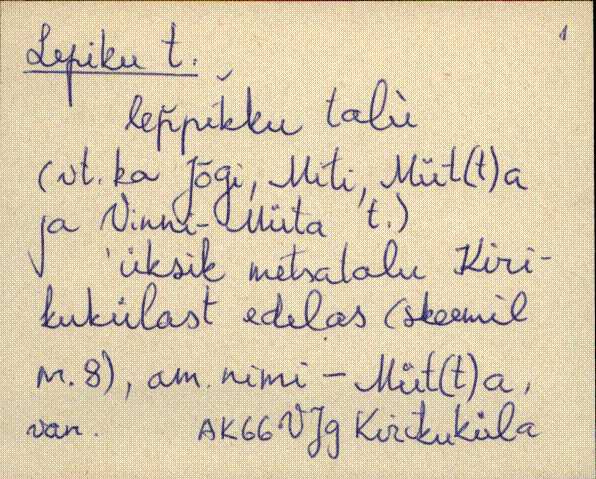 1
Lepiku t.
lep̆pĭkku talù
(vt. ka Jõgi, Miti, Müt(t)a
ja Vinni-Müta t.)
'üksik metsatalu Kiri-
kukülast edelas (skeemil
nr. 8), am. nimi – Müt(t)a,
van. AK66 VJg Kirikuküla